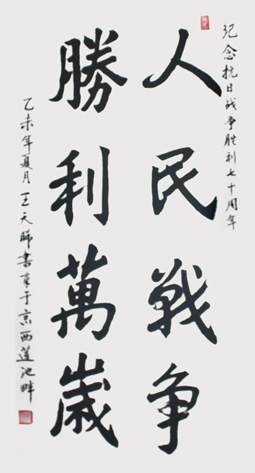 纪念抗日战争胜利七十周年
人民戰争
勝利萬歲
乙未年夏月王天勝書于京西蓮池畔